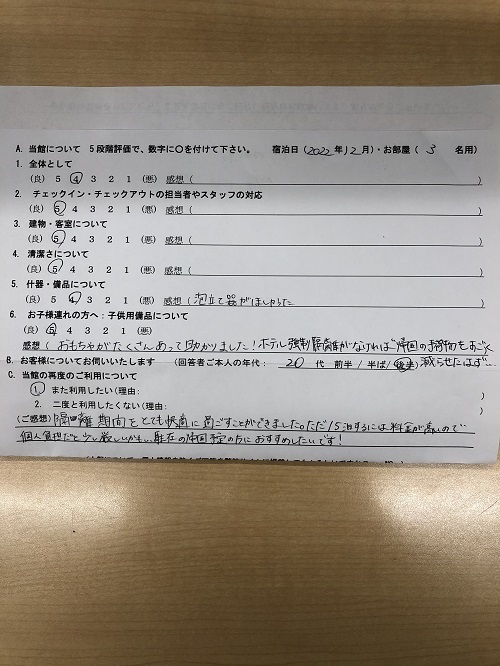 A. 当館について 5段階評価で、数字に○を付けて下さい。 宿泊日(2022年12月)・お部屋( 3 名用)
1. 全体として
(良) 5 4 3 2 1 (悪) 感想( )
2. チェックイン・チェックアウトの担当者やスタッフの対応
(良) 5 4 3 2 1 (悪) 感想( )
3. 建物・客室について
(良) 5 4 3 2 1 (悪) 感想( )
4. 清潔さについて
(良) 5 4 3 2 1 (悪) 感想( )
5. 什器・備品について
(良) 5 4 3 2 1 (悪) 感想(泡立て器がほしかった )
6. お子様連れの方へ:子供用備品について
(良) 5 4 3 2 1 (悪)
感想(おもちゃがたくさんあって助かりました!ホテル強制隔離がなければ帰国の手荷物をすごく)
B. お客様についてお伺いいたします (回答者ご本人の年代: 20 代 前半 / 半ば / 後半) 減らせたはず…
C. 当館の再度のご利用について
1. また利用したい(理由: )
2. 二度と利用したくない(理由: )
(ご感想) 隔離期間をとても快適に過ごすことができました。ただ15泊するには料金が高いので
個人負担だと少し厳しいかも…駐在の帰国予定の方におすすめしたいです!